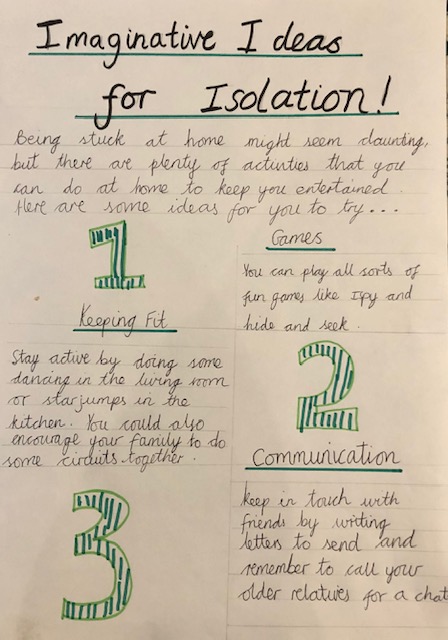 Imaginative Ideas
for Isolation!
Being stuck at home might seem daunting,
but there are plenty of activities that you
can do at home to keep you entertained.
Here are some ideas for you to try...
1
Keeping Fit
Stay active by doing some
dancing in the living room
or starjumps in the
kitchen. You could also
encourage your family to do
some circuits together.
Games
You can play all sorts of
fun games like Ispy and
hide and seek.
2
Communication
keep in touch with
friends by writing
letters to send and
remember to call your
older relatives for a chat
3